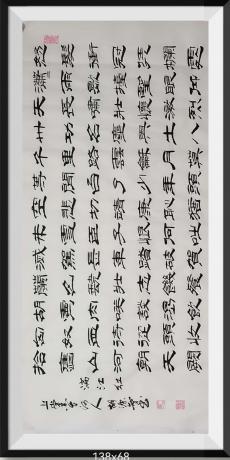 怒髮衝冠憑闌處
瀟雨歇抬望眼仰
天長嘯壯懷激烈
卅功名塵與土八
千里路雲和月莫
等閒白了少年頭
空悲切靖康恥猶
未雪臣子恨何時
滅駕長車踏破賀
蘭山缺壯志飢餐
胡虜肉笑談渴飲
匈奴血待從頭收
拾舊山河朝天闕
滿江紅
138x68